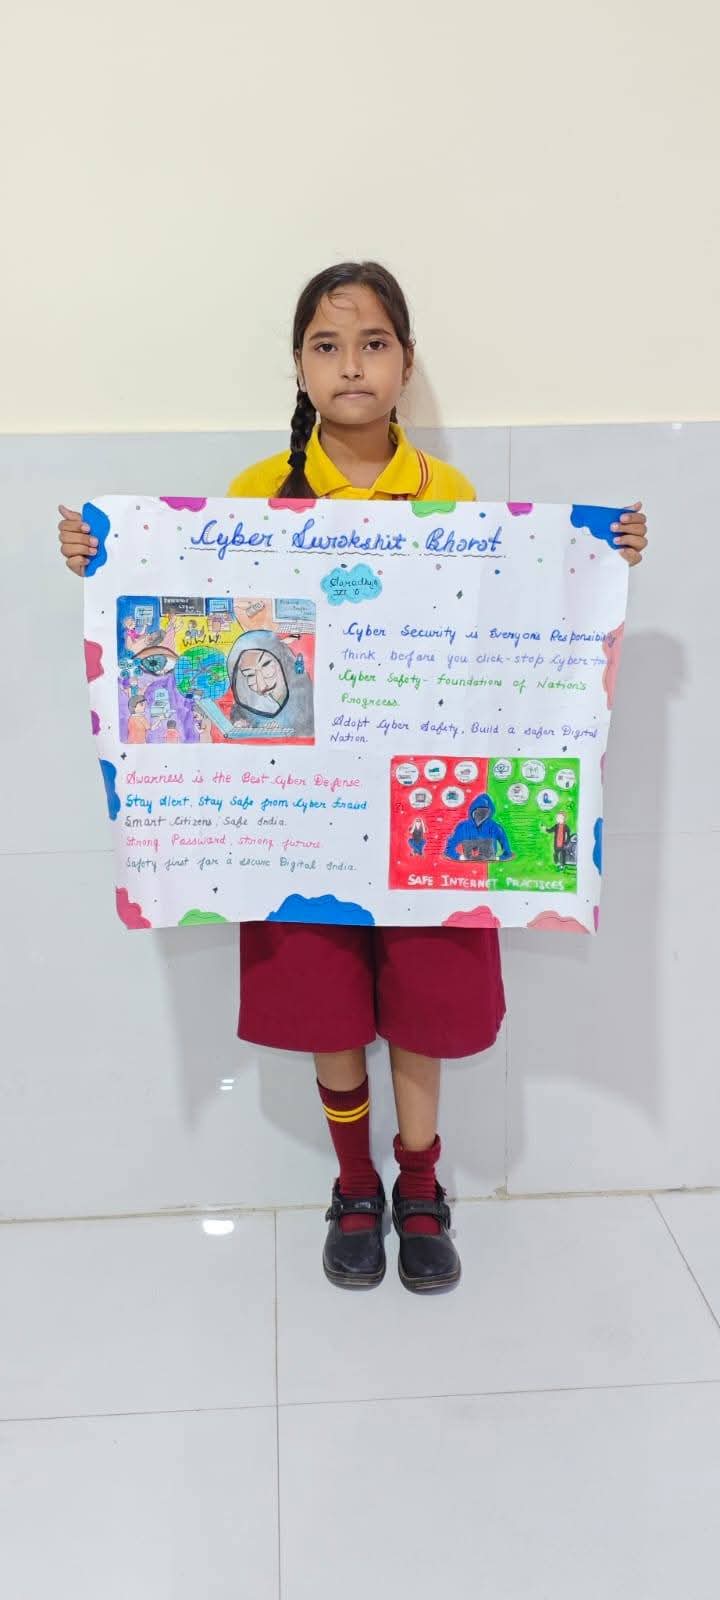 Cyber Surakshit Bharat
Aaradhya
VI D
Cyber Security is Everyone Responsibility
Think before you click - stop Cyber
Cyber Safety - foundations of Nation's
Progress.
Adopt Cyber Safety, Build a safer Digital
Nation.
Awarness is the Best Cyber Defense.
Stay Alert, Stay Safe from Cyber Fraud
Smart Citizens, Safe India.
Strong Password, strong future.
Safety first for a secure Digital India.
SAFE INTERNET PRACTICES